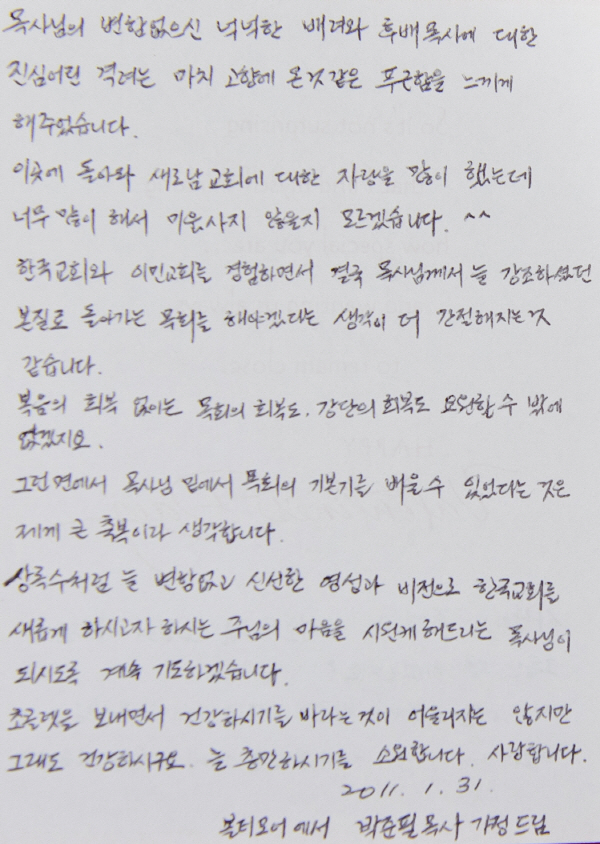 목사님의 변함없으신 넉넉한 배려와 후배목사에 대한
진심어린 격려는 마치 고향에 온것같은 푸근함을 느끼게
해주었습니다.
이곳에 돌아와 새로남교회에 대한 자랑을 많이 했는데
너무 많이 해서 미움사지 않을지 모르겠습니다. ^^
한국교회와 이민교회를 경험하면서 결국 목사님께서 늘 강조하셨던
본질로 돌아가는 목회를 해야겠다는 생각이 더 간절해지는것
같습니다.
복음의 회복 없이는 목회의 회복도. 강단의 회복도 요원할수 밖에
없겠지요.
그런 면에서 목사님 밑에서 목회의 기본기를 배울수 있었다는 것은
제게 큰 축복이라 생각합니다.
상록수처럼 늘 변함없고 신선한 영성과 비전으로 한국교회를
새롭게 하시고자 하시는 주님의 마음을 시원케해드리는 목사님이
되시도록 계속 기도하겠습니다.
초콜렛을 보내면서 건강하시기를 바라는것이 어울리지는 않지만
그래도 건강하시구요. 늘 충만하시기를 소원합니다. 사랑합니다.
2011. 1. 31.
볼티모어에서 박준필목사 가정드림